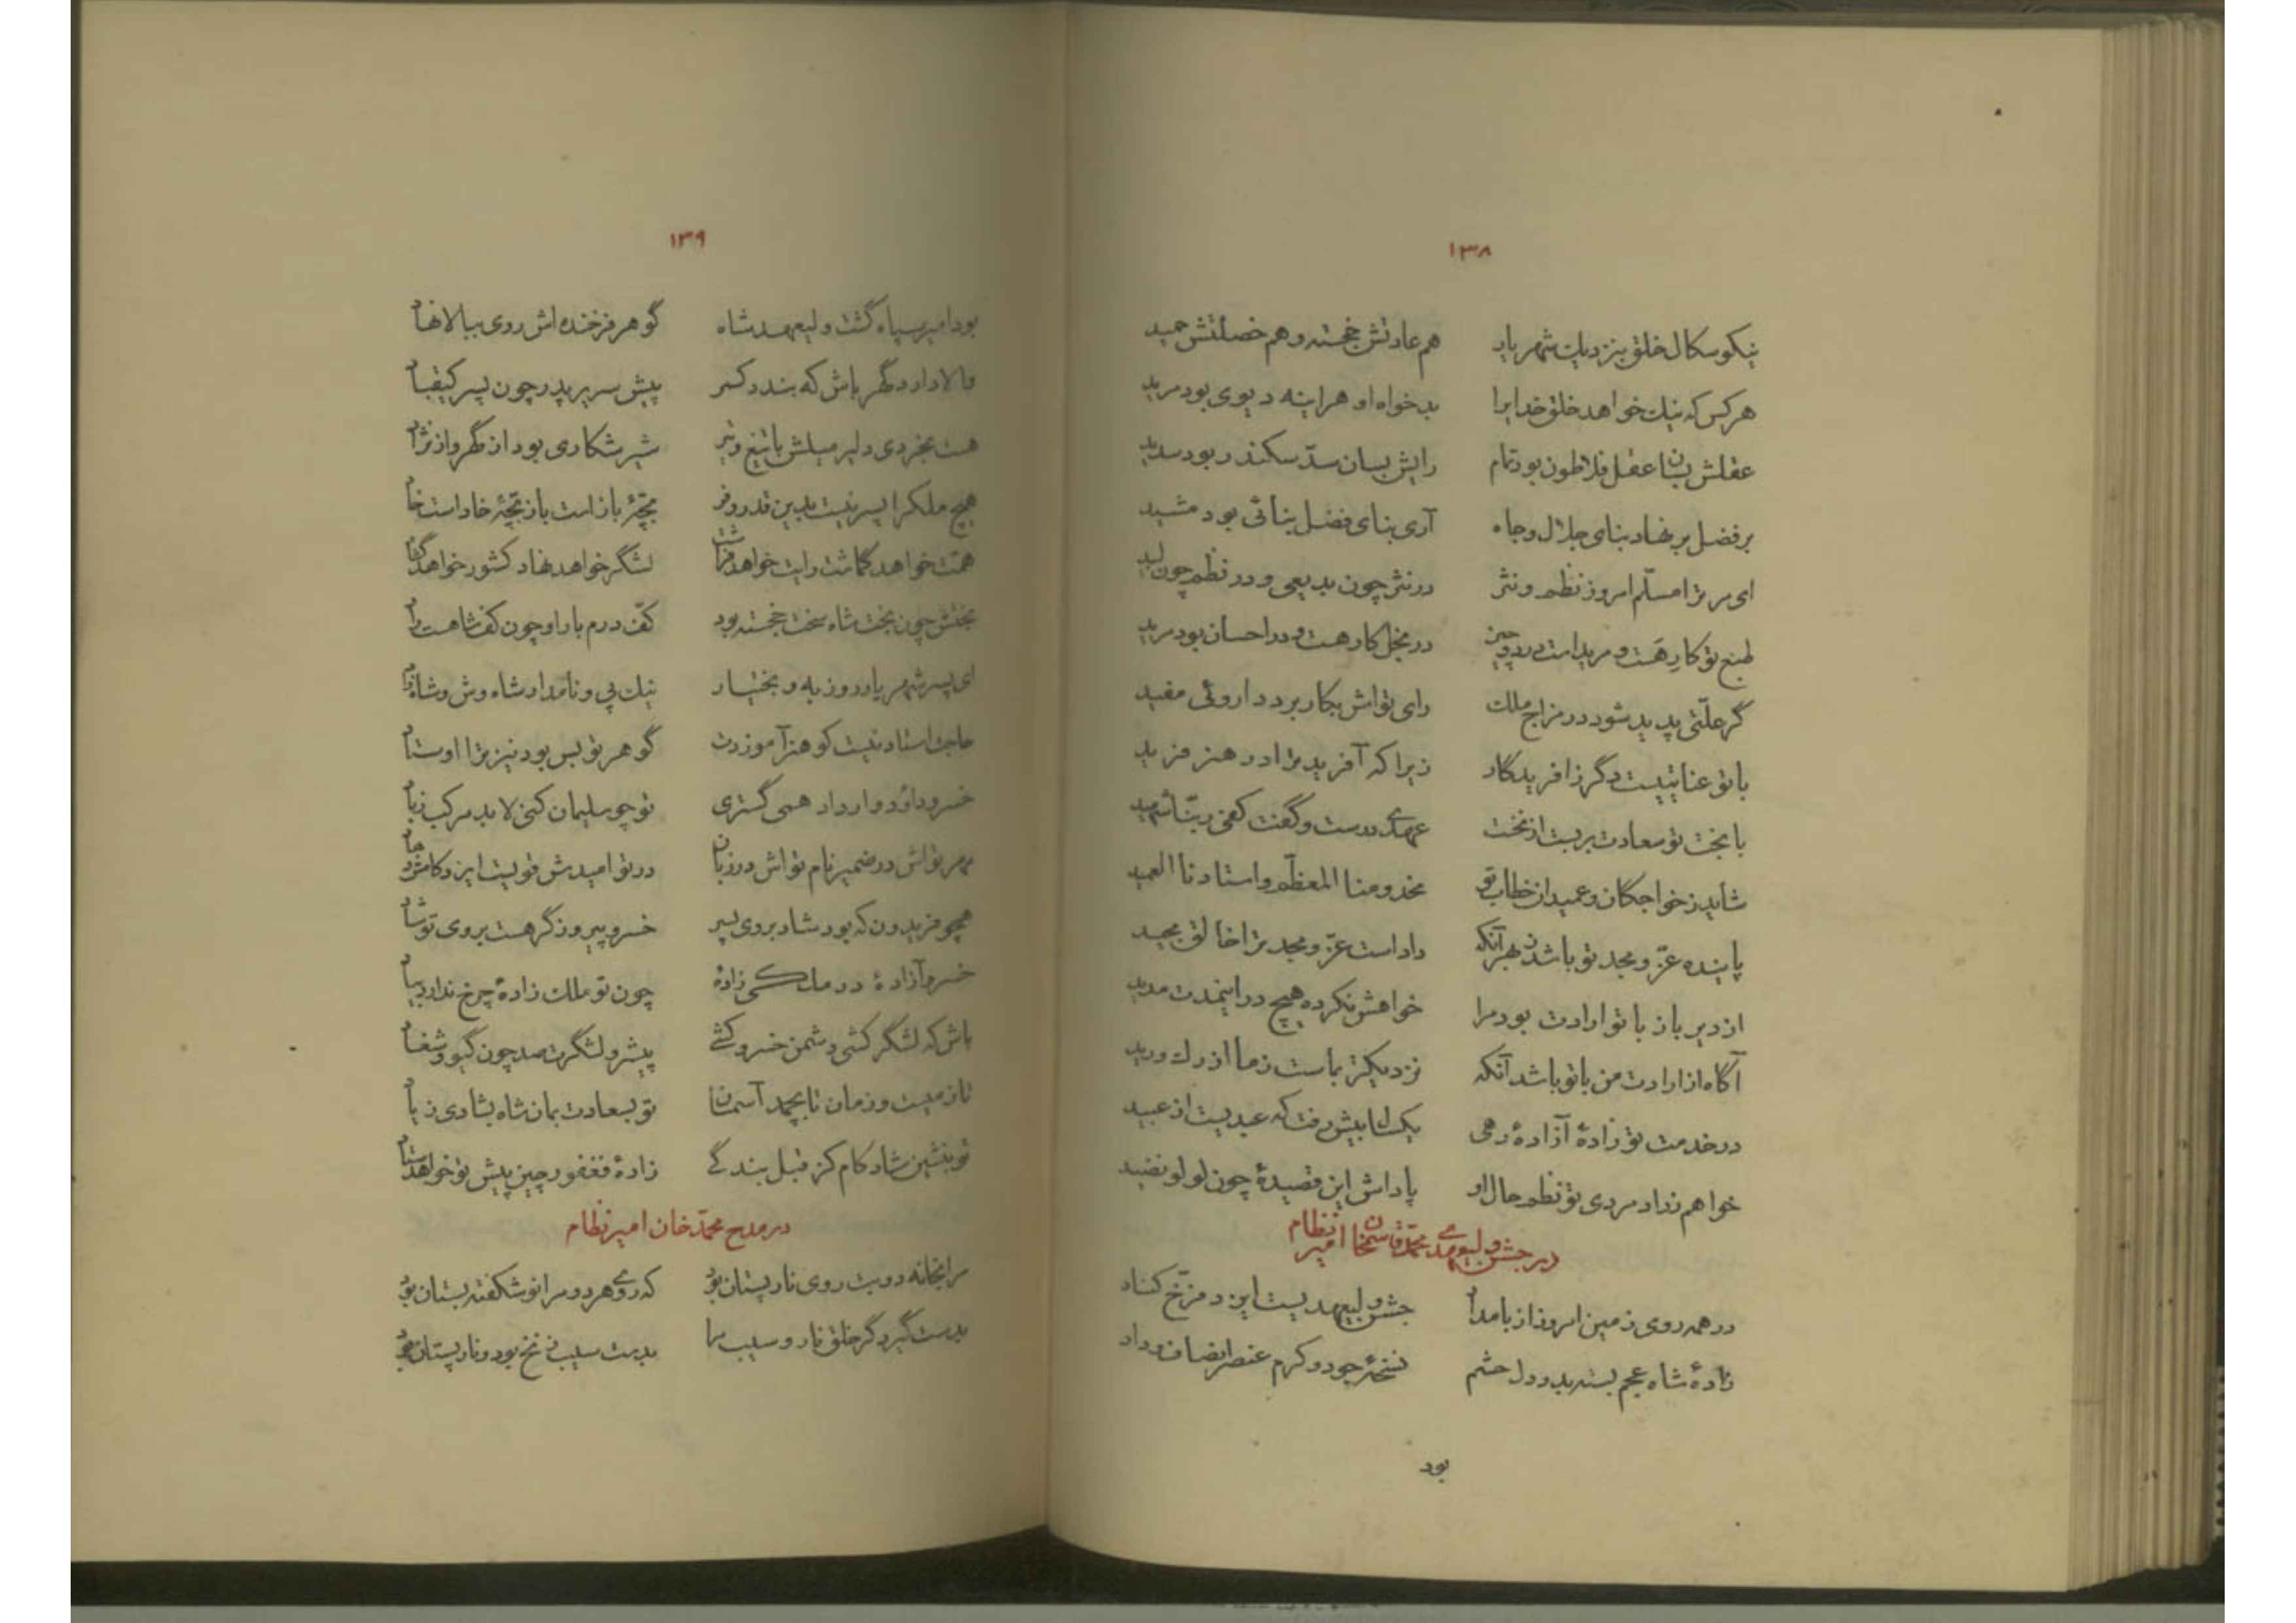 ۱۳۸
نیکو سکال خلق بنزدیک شهریار هم عادتش خجسته و هم خصلتش حمید
هر کس که نیک خواهد خلق خدایرا بدخواه او هراینه دیوی بود مرید
عقلش بسان عقل فلاطون بود تمام رایش بسان سدّ سکندر بود سدید
بر فضل بر نهاد بنای جلال و جاه آری بنای فضل بنائی بود مشید
ای مر ترا مسلّم امروز نظم و نثر در نثر چون بدیعی و در نظم چون لبید
طبع تو کارهست و مرید است در دو چیز در بخل کارهست و در احسان بود مرید
گر علّتی پدید شود در مزاج ملک رای تواش بکار برد داروئی مفید
با تو عنایتیست دگر زافریدگار زیرا که آفرید ترا در هنر فرید
با بخت تو سعادت بربست از نخست عهدی درست و گفت کفی ربّنا شهید
شاید ز خواجکان و عمیدان خطاب تو مخدومنا المعظّم و استادنا العمید
پاینده عزّ و مجد تو باشد بهر آنکه داد است عزّ و مجد ترا خالق مجید
از دیر باز با تو ارادت بود مرا خواهش نکرده هیچ در اینمدت مدید
آگاه از ارادت من با تو باشد آنکه نزدیکتر بماست ز ما از رک ورید
در خدمت تو زادهٔ آزادهٔ رهی یکسال بیش رفت که عبدیست از عبید
خواهم ز راد مردی تو نظم حال او پاداش این قصیدهٔ چون لولو نضید
در جشن ولیعهدی محمّد قاسمخان امیر نظام
در همه روی زمین امروز از بامداد جشن ولیعهدیست این در فرّخ گشاد
زادهٔ شاه عجم بسته بدو دل حشم نسخهٔ جود و کرم عنصر انصاف و داد
بود
۱۳۹
بود امیر سپاه گشت ولیعهد شاه گوهر فرخنده اش روی ببالا نهاد
والا دارد گهر باش که بندد کمر پیش سریر پدر چون پسر کیقباد
هست بخردی دلیر میلش با تیغ و تیر شیر شکاری بود از گهر و از نژاد
هیچ ملکرا پسر نیست بدین قدر و فر بچّهٔ باز است باز بچّهٔ خاد است خاد
همّت خواهد گماشت رایت خواهد فراشت لشگر خواهد نهاد کشور خواهد گشاد
بختش چون بخت شاه سخت خجسته بود کفّ درم بار او چون کف شاهست راد
ای پسر شهریار روز به و بختیار نیک پی و نامدار شاه وش و شاهزاد
حاجت استاد نیست کو هنر آموزدت گوهر تو بس بود نیز ترا اوستاد
خسرو داود وار داد همی گستری تو چو سلیمان کنی لابد مرکب ز باد
مهر تواش در ضمیر نام تواش در زبان در تو امیدش قویست ایزد کامش دهاد
همچو فریدون که بود شاد بروی پسر خسرو پیروزگر هست بروی تو شاد
خسرو آزادهٔ در ملکی زادهٔ چون تو ملک زادهٔ چرخ ندارد بیاد
باش که لشگر کشی دشمن خسرو کشی پیشرو لشگرت صد چون گیو و قباد
تا زمیست و زمان تا بچمد آسمان تو بسعادت بمان شاه بشادی زیاد
تو بنشین شاد کام کز قبل بندگی زادهٔ فغفور چین پیش تو خواهد ستاد
در مدح محمّد خان امیر نظام
مرا بخانه دو بت روی نار پستان بود که روی هر دو مرا نو شکفته بستان بود
بدست گیرد گر خلق نار و سیب مرا بدست سیب زنخ بود و نار پستان بود